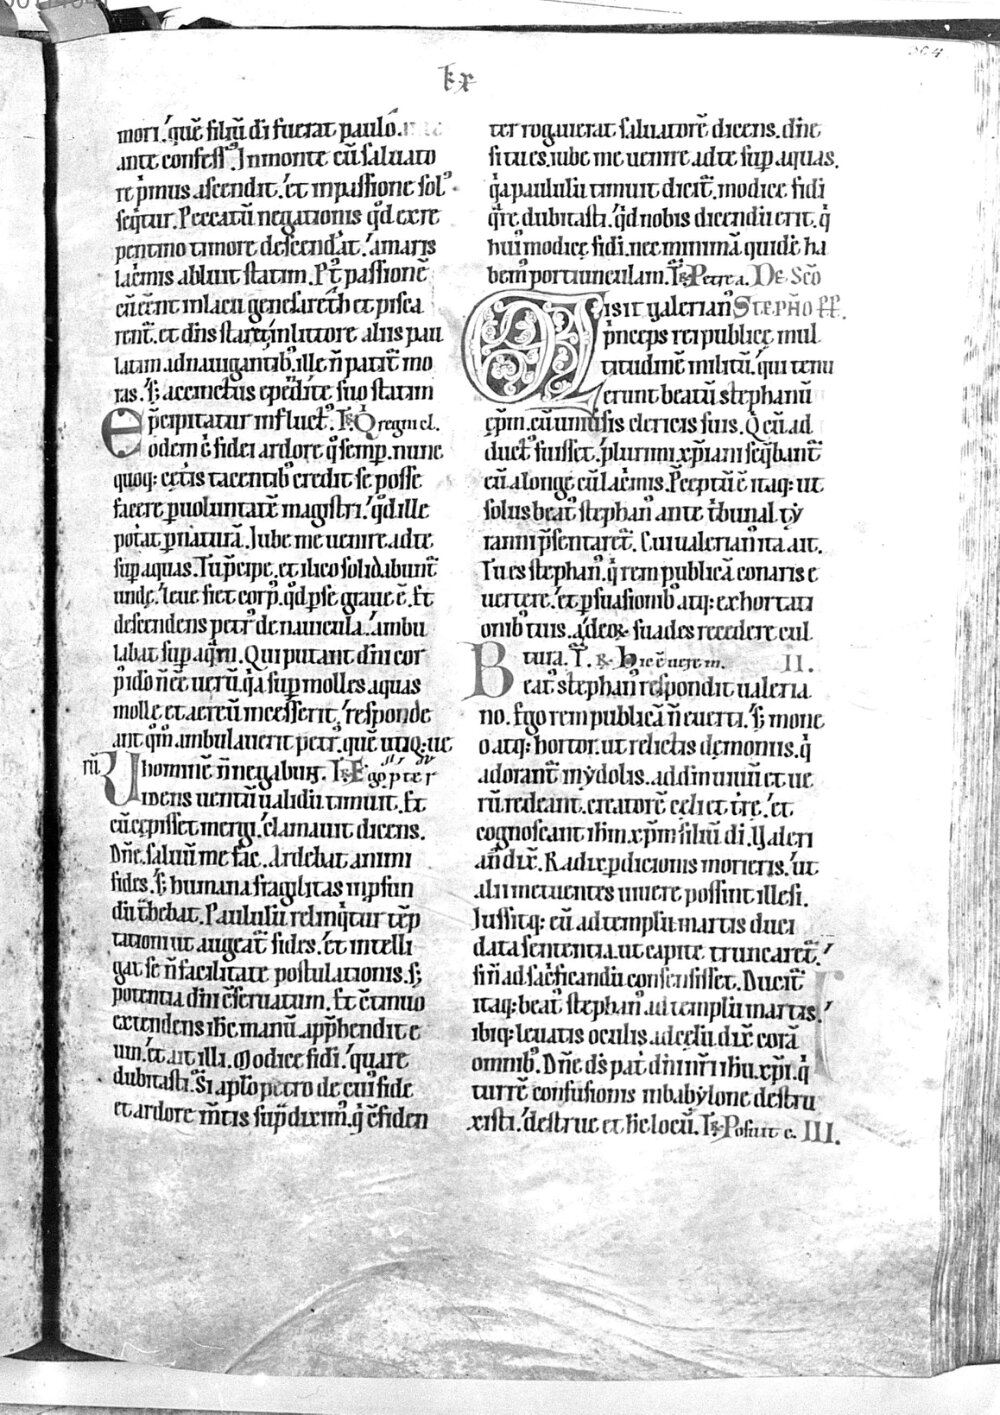 kx
mori. quē filiū dī fuerat paulo
ante confessꝰ. In monte cū saluato
re p̄mus ascendit. et in passione solꝰ
seq̄tur. Peccatū negationis qd̄ ex re
pentino timore descendit. amaris
lacͥmis abluit statim. Pꝰt passionē
cū eēnt in lacu genesareth et pisca
rent̄. et dn̄s staret in littore. aliis pau
latim adnauigantibꝫ. ille n̄ patit̄ mo
ras. sꝫ accinctus ependite suo statim
p̄cipitatur in fluctꝰ. R̄ Qͥ regni cl.
Eodem ē fidei ardore qͦ semp̄. nunc
quoqꝫ cet̄is tacentibꝫ credit se posse
facere p uoluntatē magistri. qd̄ ille
pot̄at p naturā. Iube me uenire ad te
sup̄ aquas. Tu p̄cipe. et ilico solidabunt̄
unde. leue fiet corpꝰ. qd̄ p se graue ē. Et
descendens petrꝰ de nauicula. ambu
labat sup̄ aq̄m. Qui putant dn̄i cor
pꝰ ido n̄ eē uerū. qͣ sup̄ molles aquas
molle et aereū incesserit. responde
ant qͦm̄ ambulauerit petrꝰ. quē utiqꝫ ue
rū hominē n̄ negabunt. R̄ Ego p te r
Videns uentū ualidū timuit. Et
cū cępisset mergi. clamauit dicens.
Dn̄e. saluū me fac. Ardebat animi
fides. sꝫ humana fragilitas in p̄fun
dū t̄hebat. Paululū relinqͥtur tēp
tationi ut augeat̄ fides. et intelli
gat se n̄ facilitate postulationis. sꝫ
potentia dn̄i c̄seruatum. Et c̄tinuo
extendens ihc̄ manū. app̄hendit e
um. et ait illi. Modice fidi. quare
dubitasti. Si apłō petro de cuiꝰ fide
et ardore m̄tis sup̄ diximꝰ. qͥ c̄fiden
ter rogauerat saluatorē dicens. dn̄e
si tu es. iube me uenire ad te sup̄ aquas.
qͣ paululū timuit dicit̄. modice fidi
qͣre dubitasti. qͥd nobis dicendū erit. qͥ
huiꝰ modicę fidi. nec minimā quidē ha
bemꝰ portiunculam. R̄ Petre a. De Scō
Stephͦo pp.
Misit ualerianꝰ
p̄nceps rei publicę mul
titudinē militū. qui tenu
erunt beatū stephanū
ep̄m. cū uniu̓sis clericis suis. Qͥ cū ad
ductꝰ fuisset. plurimi xp̄iani seq̄bant̄
eū a longe cū lacͥmis. P̄ceptū ē itaqꝫ ut
solus beatꝰ stephanꝰ ante t̄bunal ty
ranni p̄sentaret̄. Cui ualerianꝰ ita ait.
Tu es stephanꝰ. qͥ rem publicā conaris e
uertere. et p̄suasionibꝫ atqꝫ exhortati
onibꝫ tuis. a deoꝝ suades recedere cul
tura. T. R̄ Hic ē uere m. II.
Beatꝰ stephanꝰ respondit ualeria
no. Ego rem publicā n̄ euerti. sꝫ mone
o atqꝫ hortor. ut relictis demonus. qͥ
adorant̄ in ydolis. ad dm̄ uiuū et ue
rū redeant. creatorē celi et t̄re. et
cognoscant ihm̄. xp̄m filiū dī. Valeri
anꝰ dix̄. Radix pdicionis morieris. ut
alii metuentes uiuere possint illesi.
Iussitqꝫ eū ad templū martis duci
data sententia. ut capite truncaret̄.
si n̄ ad sacͥficandū consensisset. Ducit̄
itaqꝫ beatꝰ stephanꝰ ad templū martis.
ibiqꝫ leuatis oculis ad celū dix̄ corā
omnibꝫ. Dn̄e ds̄ pat̄ dn̄i nr̄i ihu. xp̄i. qͥ
turrē confusionis in babylone destru
xisti. destrue et hc̄ locū. R̄ Posuit c. III.